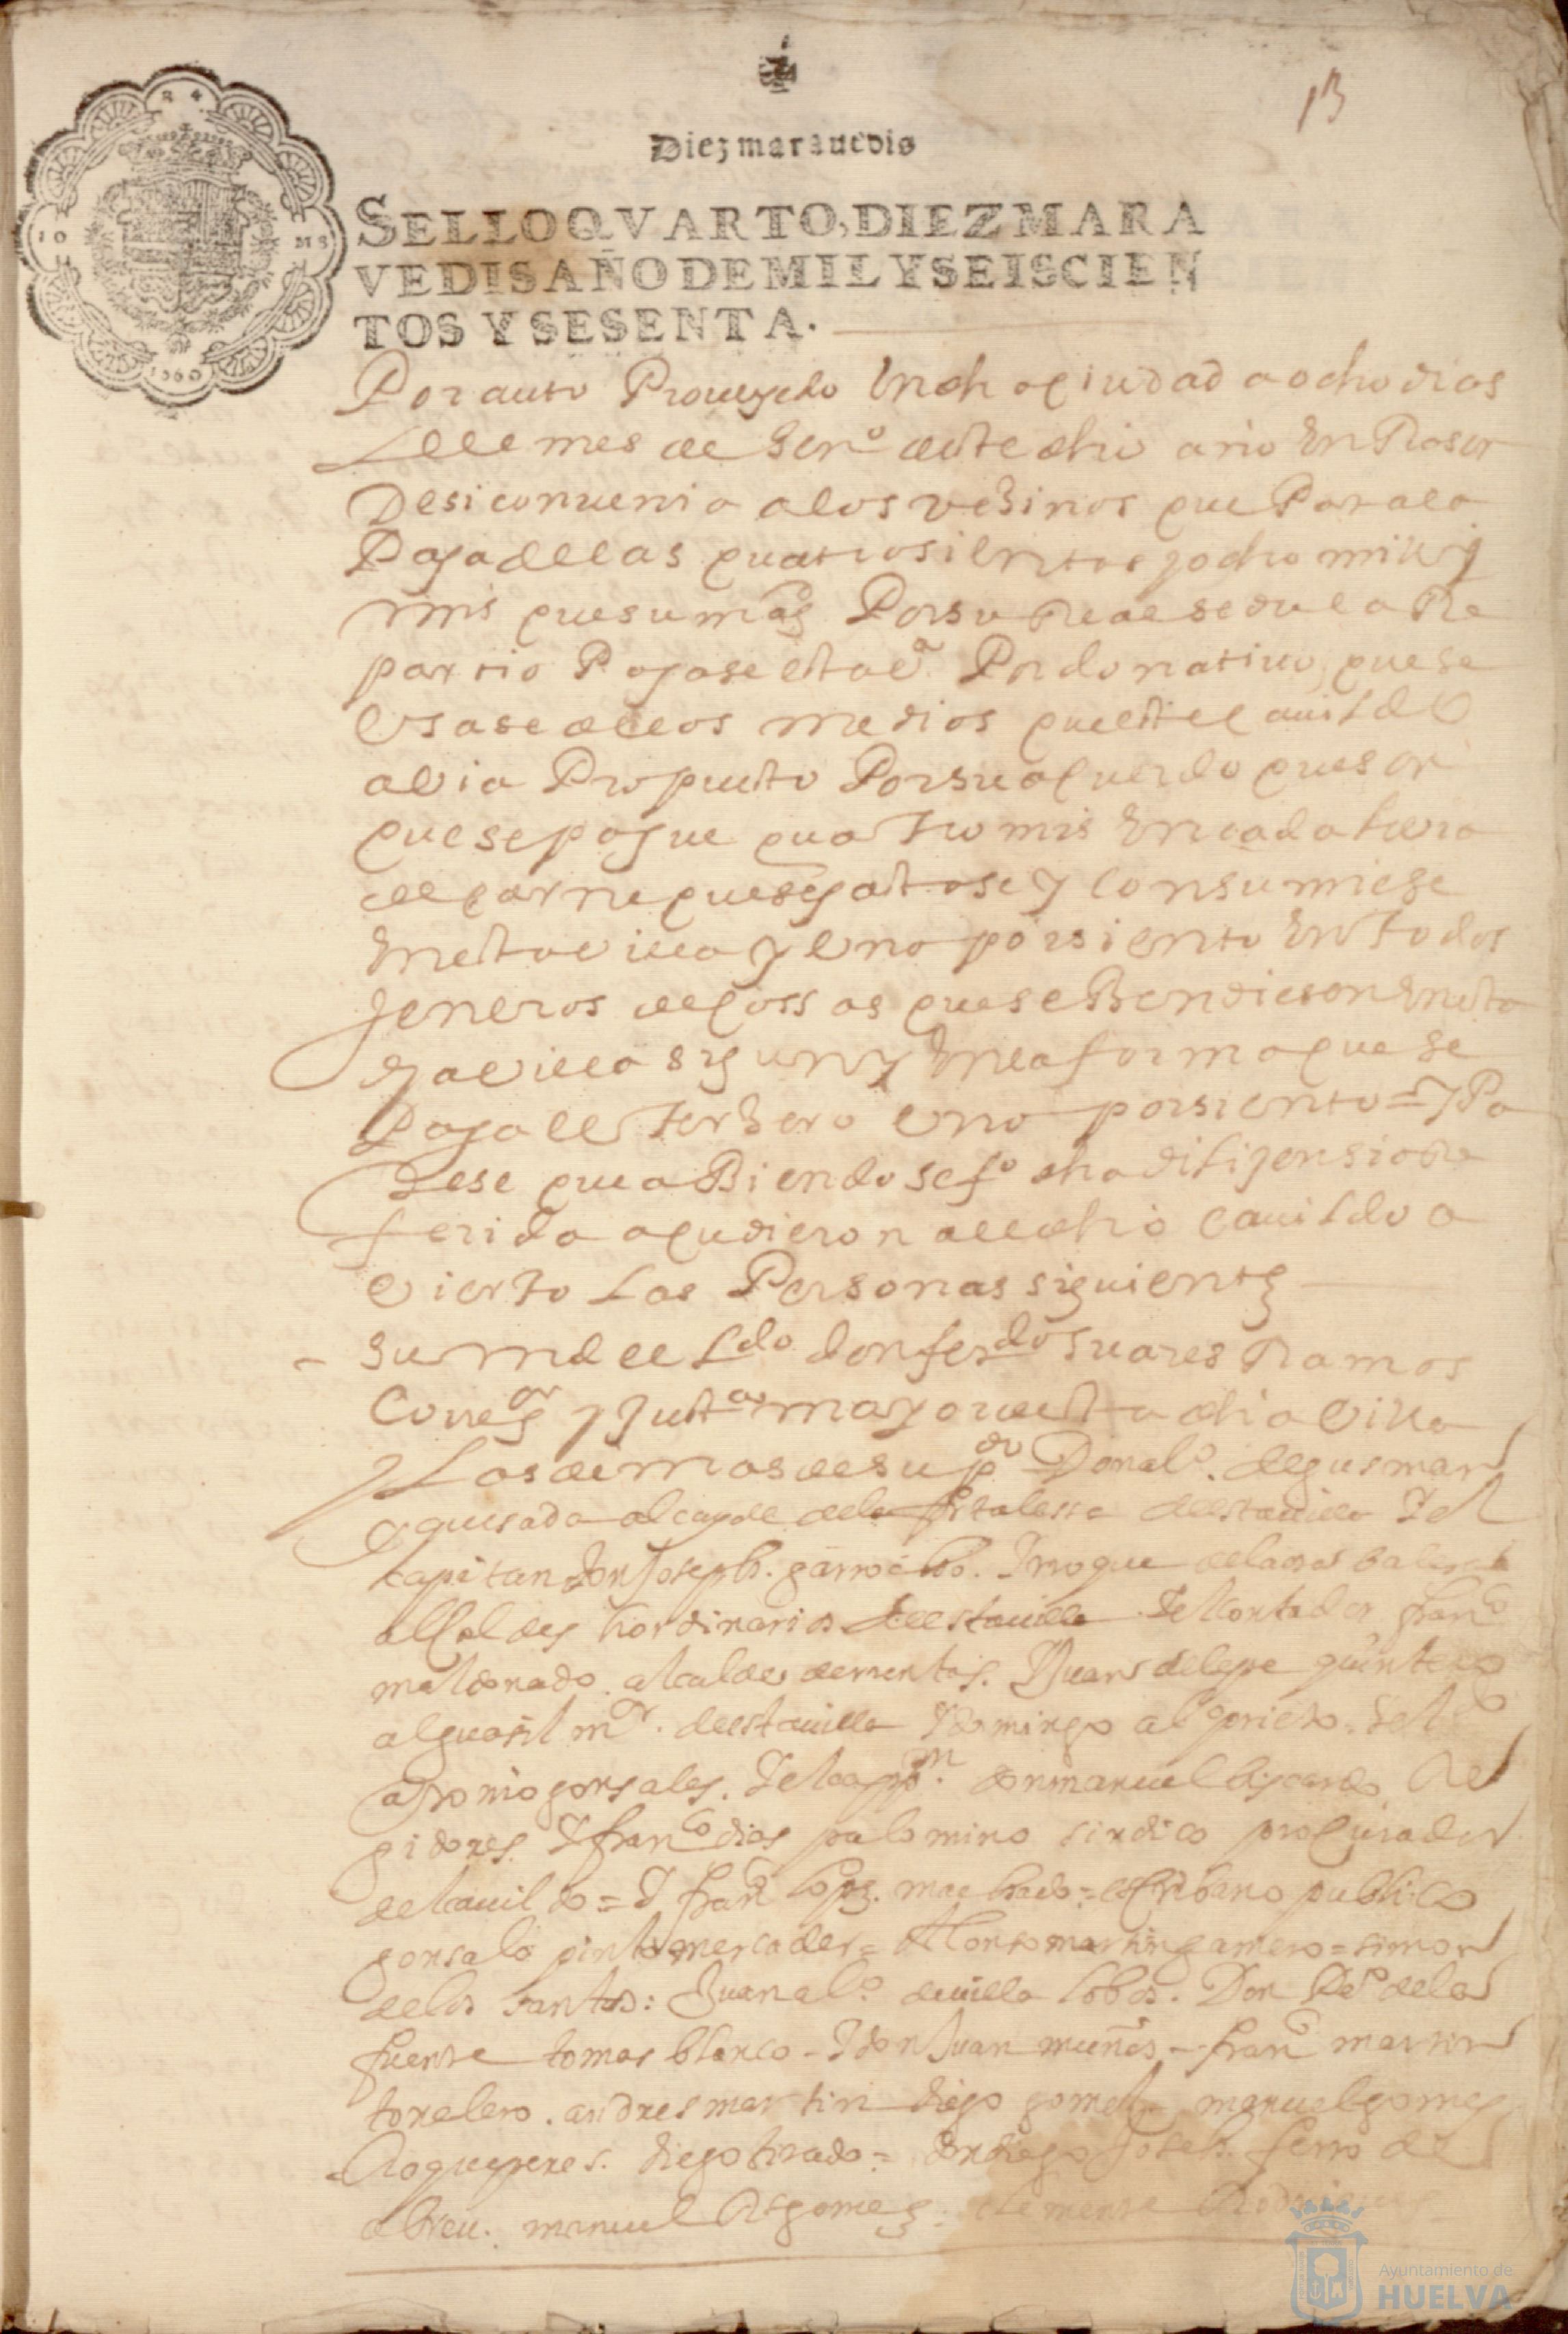 13
Diez maravedis
SELLO QVARTO, DIEZ MARA
VEDIS, AÑO DE MIL Y SEISCIEN
TOS Y SESENTA.
10 MS
1660
Por auto Proueydo En dha çiudad a ocho dias
del mes de hen.º deste dho año En Rason
De si conuenia a los vesinos que Para la
Paga de las quatrosientos y ocho mill
mrs que su magd Por su Real sedula Re
partio Pagase esta va Por donatiuo, que se
Vsase de los medios que este cauildo
avia Propuesto Por su aquerdo que son
que se pague quatro mrs En cada libra
de carne que se gastase y consumiese
En esta villa y Vno por siento En todos
jeneros de cossas que se Bendiesen En esta
dha villa sigun y En la forma que se
paga el terzero Vno por siento = y Pa
rese que aBiendose fº dha dilijensia Re
ferida acudieron al dho cauildo a
Vierto Las Personas siguientes
su md el Ldo don ferdo suares Ramos
Corregor y Justa mayor de esta dha villa
y Las demas de su
Don alº. de gusman
quesada alcayde de la fortalessa de esta uilla Y el
capitan don Joseph. garrocho. Y roque de la
alcaldes hordinarios de esta uilla. Y el contador franco
maldonado. alcalde de mentas. Y Juan de lepe quintero
alguasil mor. de esta uilla Y Domingo alº prieto. Y el Ldo
antonio gonsales. Y el cappn. don manuel Re
gidores. Y franco dias palomino sindico procurador
del cauildo = Y franco lopez. machado = escribano publico
gonsalo pinto mercader = Alonso martin gamero = simon
de los santos: Juan alº. de uilla lobos. Don de la
fuente tomas blanco - Y don Juan muños - franco martin
tonelero. andres martin diego gomes manuel gomes
Roque peres. diego tirado = don diego Joseph. ferro de
abreu. manuel gomes; clemente Rodrigues
Ayuntamiento de
HUELVA